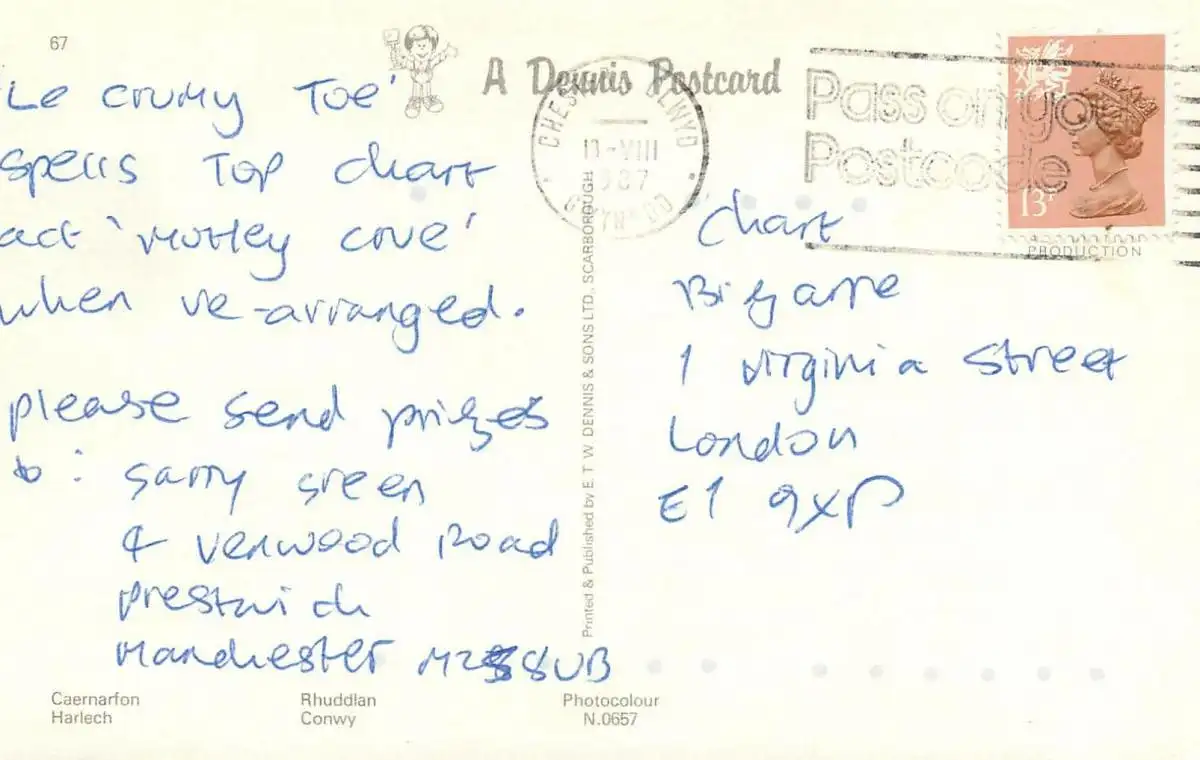 67
'Le crumy Toe'
spells Top chart
act 'Motley crue'
when re-arranged.
please send prizes
to: Garry Green
4 Verwood Road
Prestwich
Manchester M25 8UB
Caernarfon
Harlech
Rhuddlan
Conwy
Photocolour
N.0657
A Dennis Postcard
Printed & Published by E. T. W. DENNIS & SONS LTD., SCARBOROUGH
CLWYD
13-VIII
1987
GWYNEDD
Pass on your
Postcode
13P
PRODUCTION
Chart
Bizarre
1 Virginia Street
London
E1 9XP